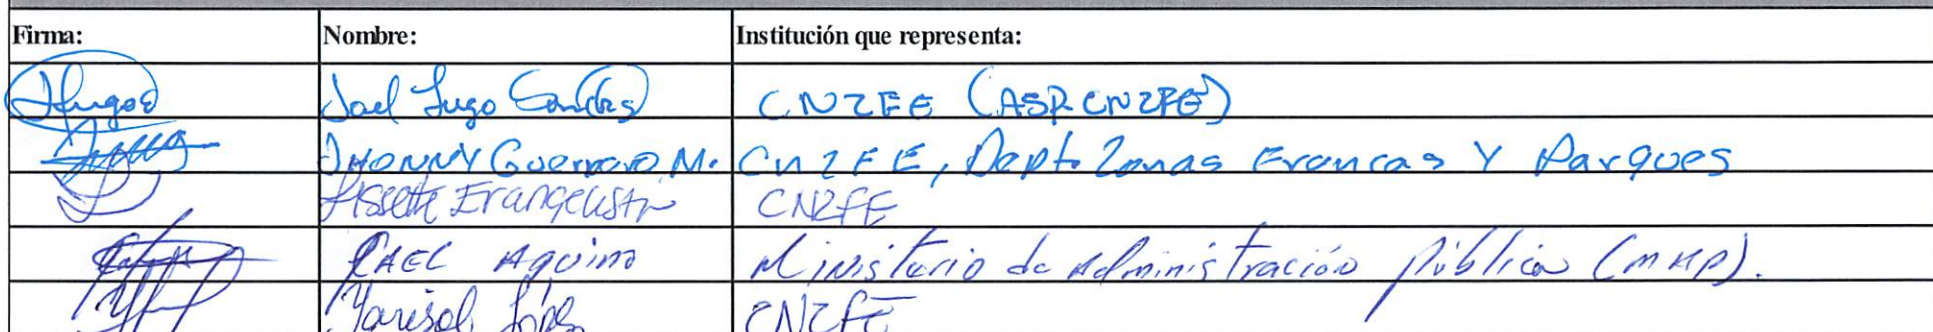 Firma: Nombre: Institución que representa:
Joel Lugo CNZFE (ASP CNZFE)
JHONNY Guerrero M. CNZFE, Dept. Zonas Francas Y Parques
Lissette Evangelista CNZFE
RAEL Aquino Ministerio de Administración Pública (MAP).
Marisol López CNZFE